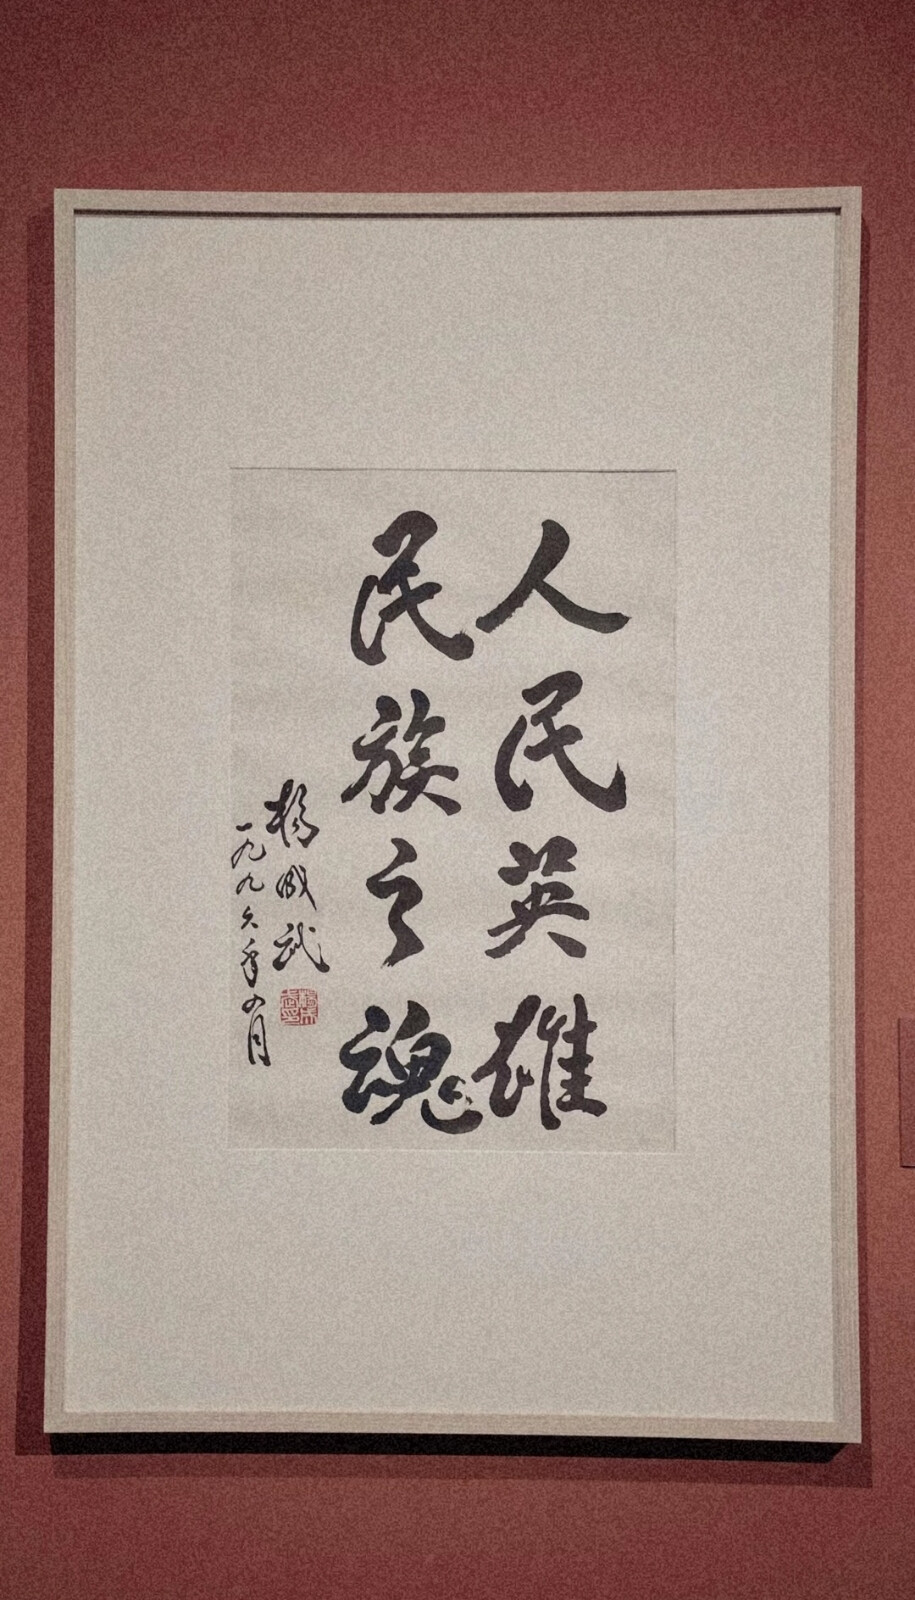 人民英雄
民族之魂
杨成武
一九九六年四月